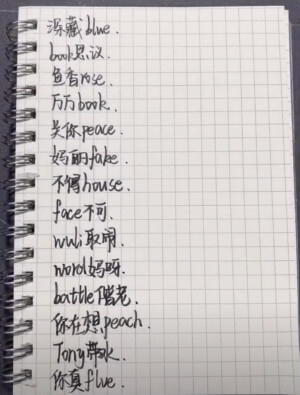 深藏blue.
book思议.
鱼香rose.
万万book.
关你peace.
妈的fake.
不得house.
face不可.
wuli取闹.
word妈呀.
battle偕老.
你在想peach.
Tony带水.
你真flue.